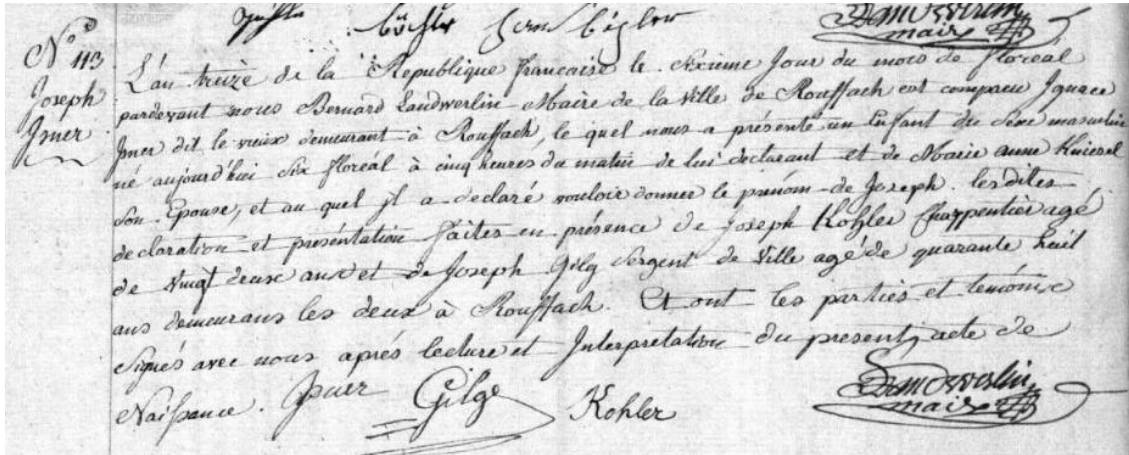 Büchler
maire
N.° 113
Joseph
Jmer
L'an treize de la République française le Sixième Jour du mois de floréal
pardevant nous Bernard Landwerlin Maire de la Ville de Rouffach est comparu Jgnace
Jmer dit le vieux demeurant à Rouffach, le quel nous a présenté un Enfant du Sexe masculin
né aujourd'hui Six floréal à cinq heures du matin de lui declarant et de Marie anne
Son Epouse, et au quel jl a declaré vouloir donner le prénom de Joseph. les dites
declaration et présentation faites en présence de joseph Kohler Charpentier agé
de vingt deux ans et de Joseph Gilg Sergent de Ville agé de quarante huit
ans demeurans les deux à Rouffach. Et ont les parties et temoins
Signés avec nous aprés lecture et Jnterpretation du present acte de
Naissance. Jmer Gilg Kohler Landwerlin
maire